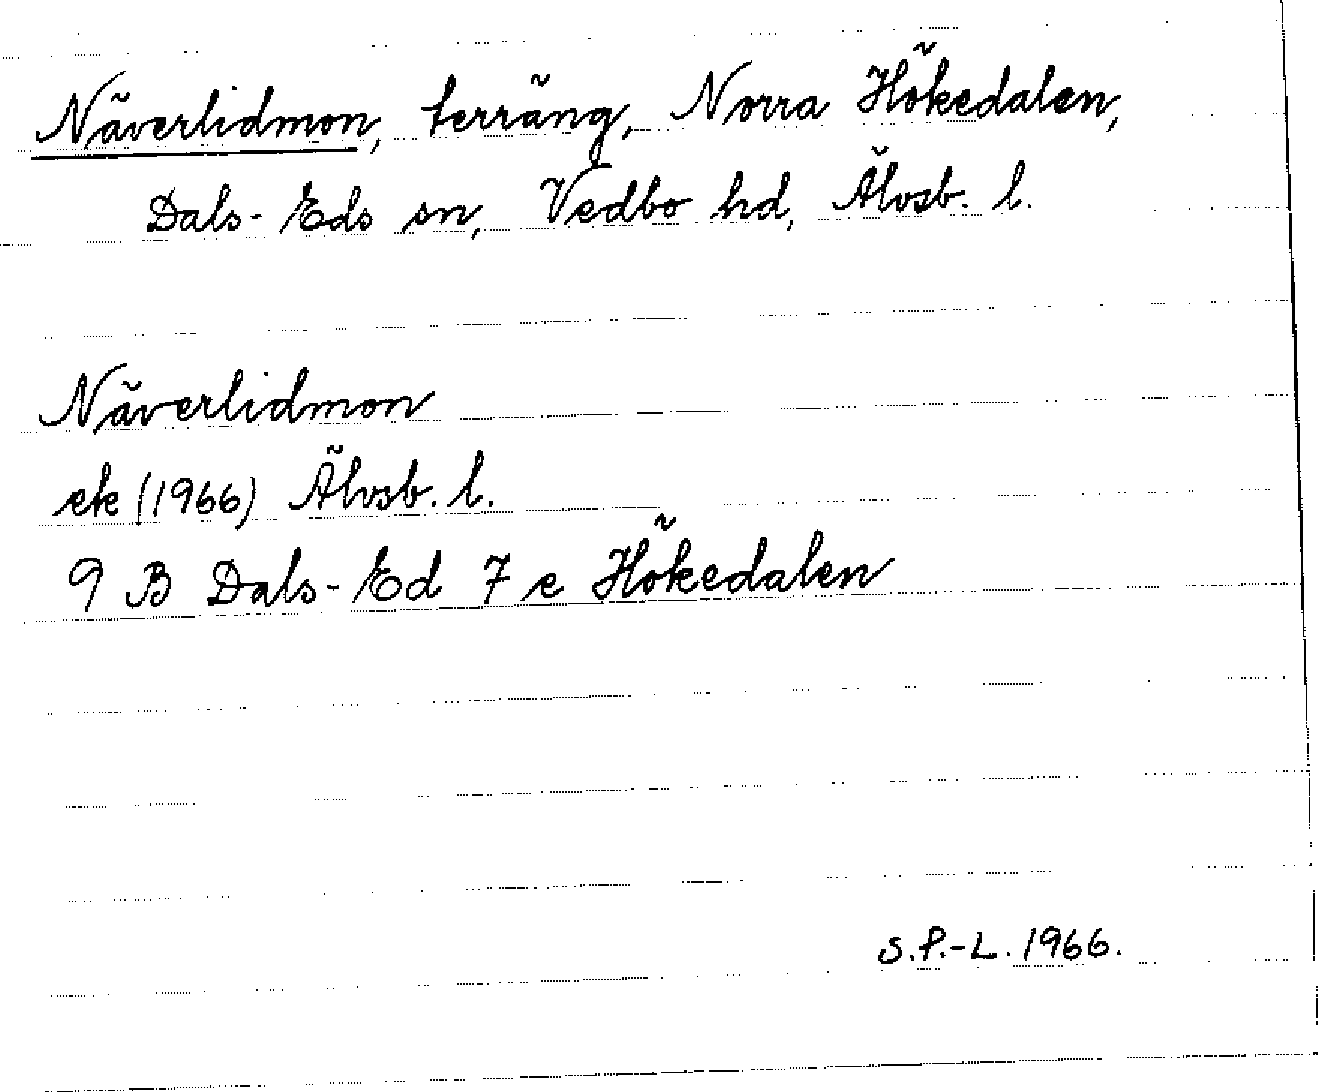 Näverlidmon, terräng, Norra Hökedalen,
Dals-Eds sn, Vedbo hd, Älvsb. l.
Näverlidmon
ek (1966) Älvsb. l.
9 B Dals-Ed 7 e Hökedalen
S.P.-L. 1966.